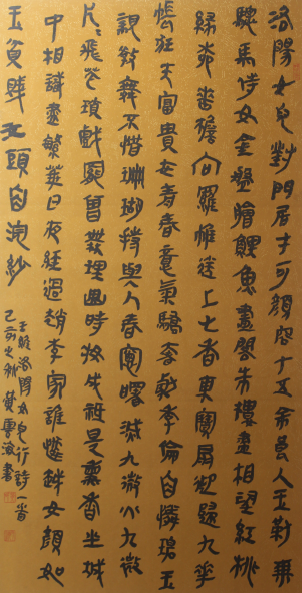 洛陽女兒對門居才可顏容十五餘良人玉勒乘
驄馬侍女金盤膾鯉魚畫閣朱樓盡相望紅桃
綠柳垂簷向羅帷送上七香車寶扇迎歸九華
帳狂夫富貴在青春意氣驕奢劇季倫自憐碧玉
親教舞不惜珊瑚持與人春窗曙滅九微火九微
片片飛花瑣戲罷曾無理曲時妝成祗是薰香坐城
中相識盡繁華日夜經過趙李家誰憐越女顏如
玉貧賤江頭自浣紗
王維洛陽女兒行詩一首
之秋黃雲書